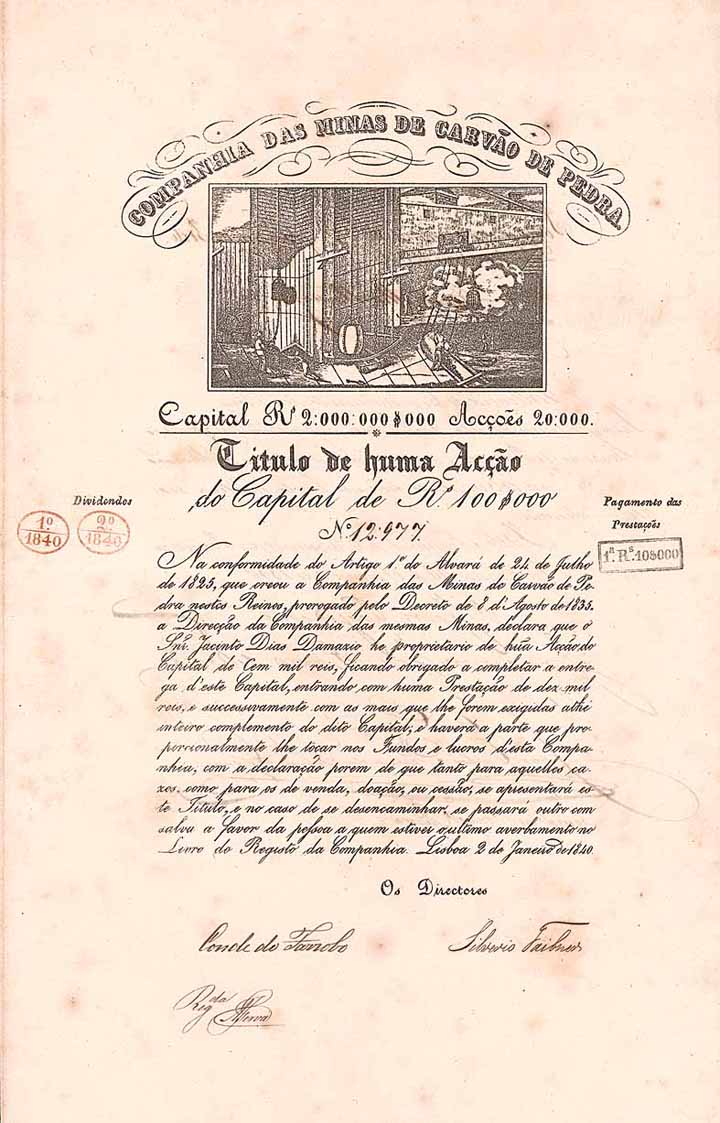 COMPANHIA DAS MINAS DE CARVÃO DE PEDRA.
Capital Rs 2:000:000$000 Acções 20:000.
Titulo de huma Acção
do Capital de Rs. 100$000
No. 12.977.
Dividendos
1º 1840
2º 1840
Pagamento das
Prestações
1ª Rs. 10$000
Na conformidade do Artigo 1º do Alvará de 24 de Julho
de 1825, que creou a Companhia das Minas de Carvão de Pe-
dra nestes Reinos, prorogado pelo Decreto de 8 d'Agosto de 1835.
a Direcção da Companhia das mesmas Minas, declara que o
Snr. Jacinto Dias Damazio he proprietario de hũa Acção do
Capital de Cem mil reis, ficando obrigado a completar a entre-
ga d'este Capital, entrando com huma Prestação de dez mil
reis, e successivamente com as mais que lhe forem exigidas athé
inteiro complemento do dito Capital; e haverá a parte que pro-
porcionalmente lhe tocar nos Fundos e lucros d'esta Compa-
nhia, com a declaração porem de que tanto para aquelles ca-
zos, como para os de venda, doação, ou cessão, se apresentará es-
te Titulo, e no caso de se desencaminhar, se passará outro com
salva a favor da pessoa a quem estiver o ultimo averbamento no
Livro do Registo da Companhia. Lisboa 2 de Janeiro de 1840.
Os Directores
Conde do Farrobo
Silverio Taibner
Regda